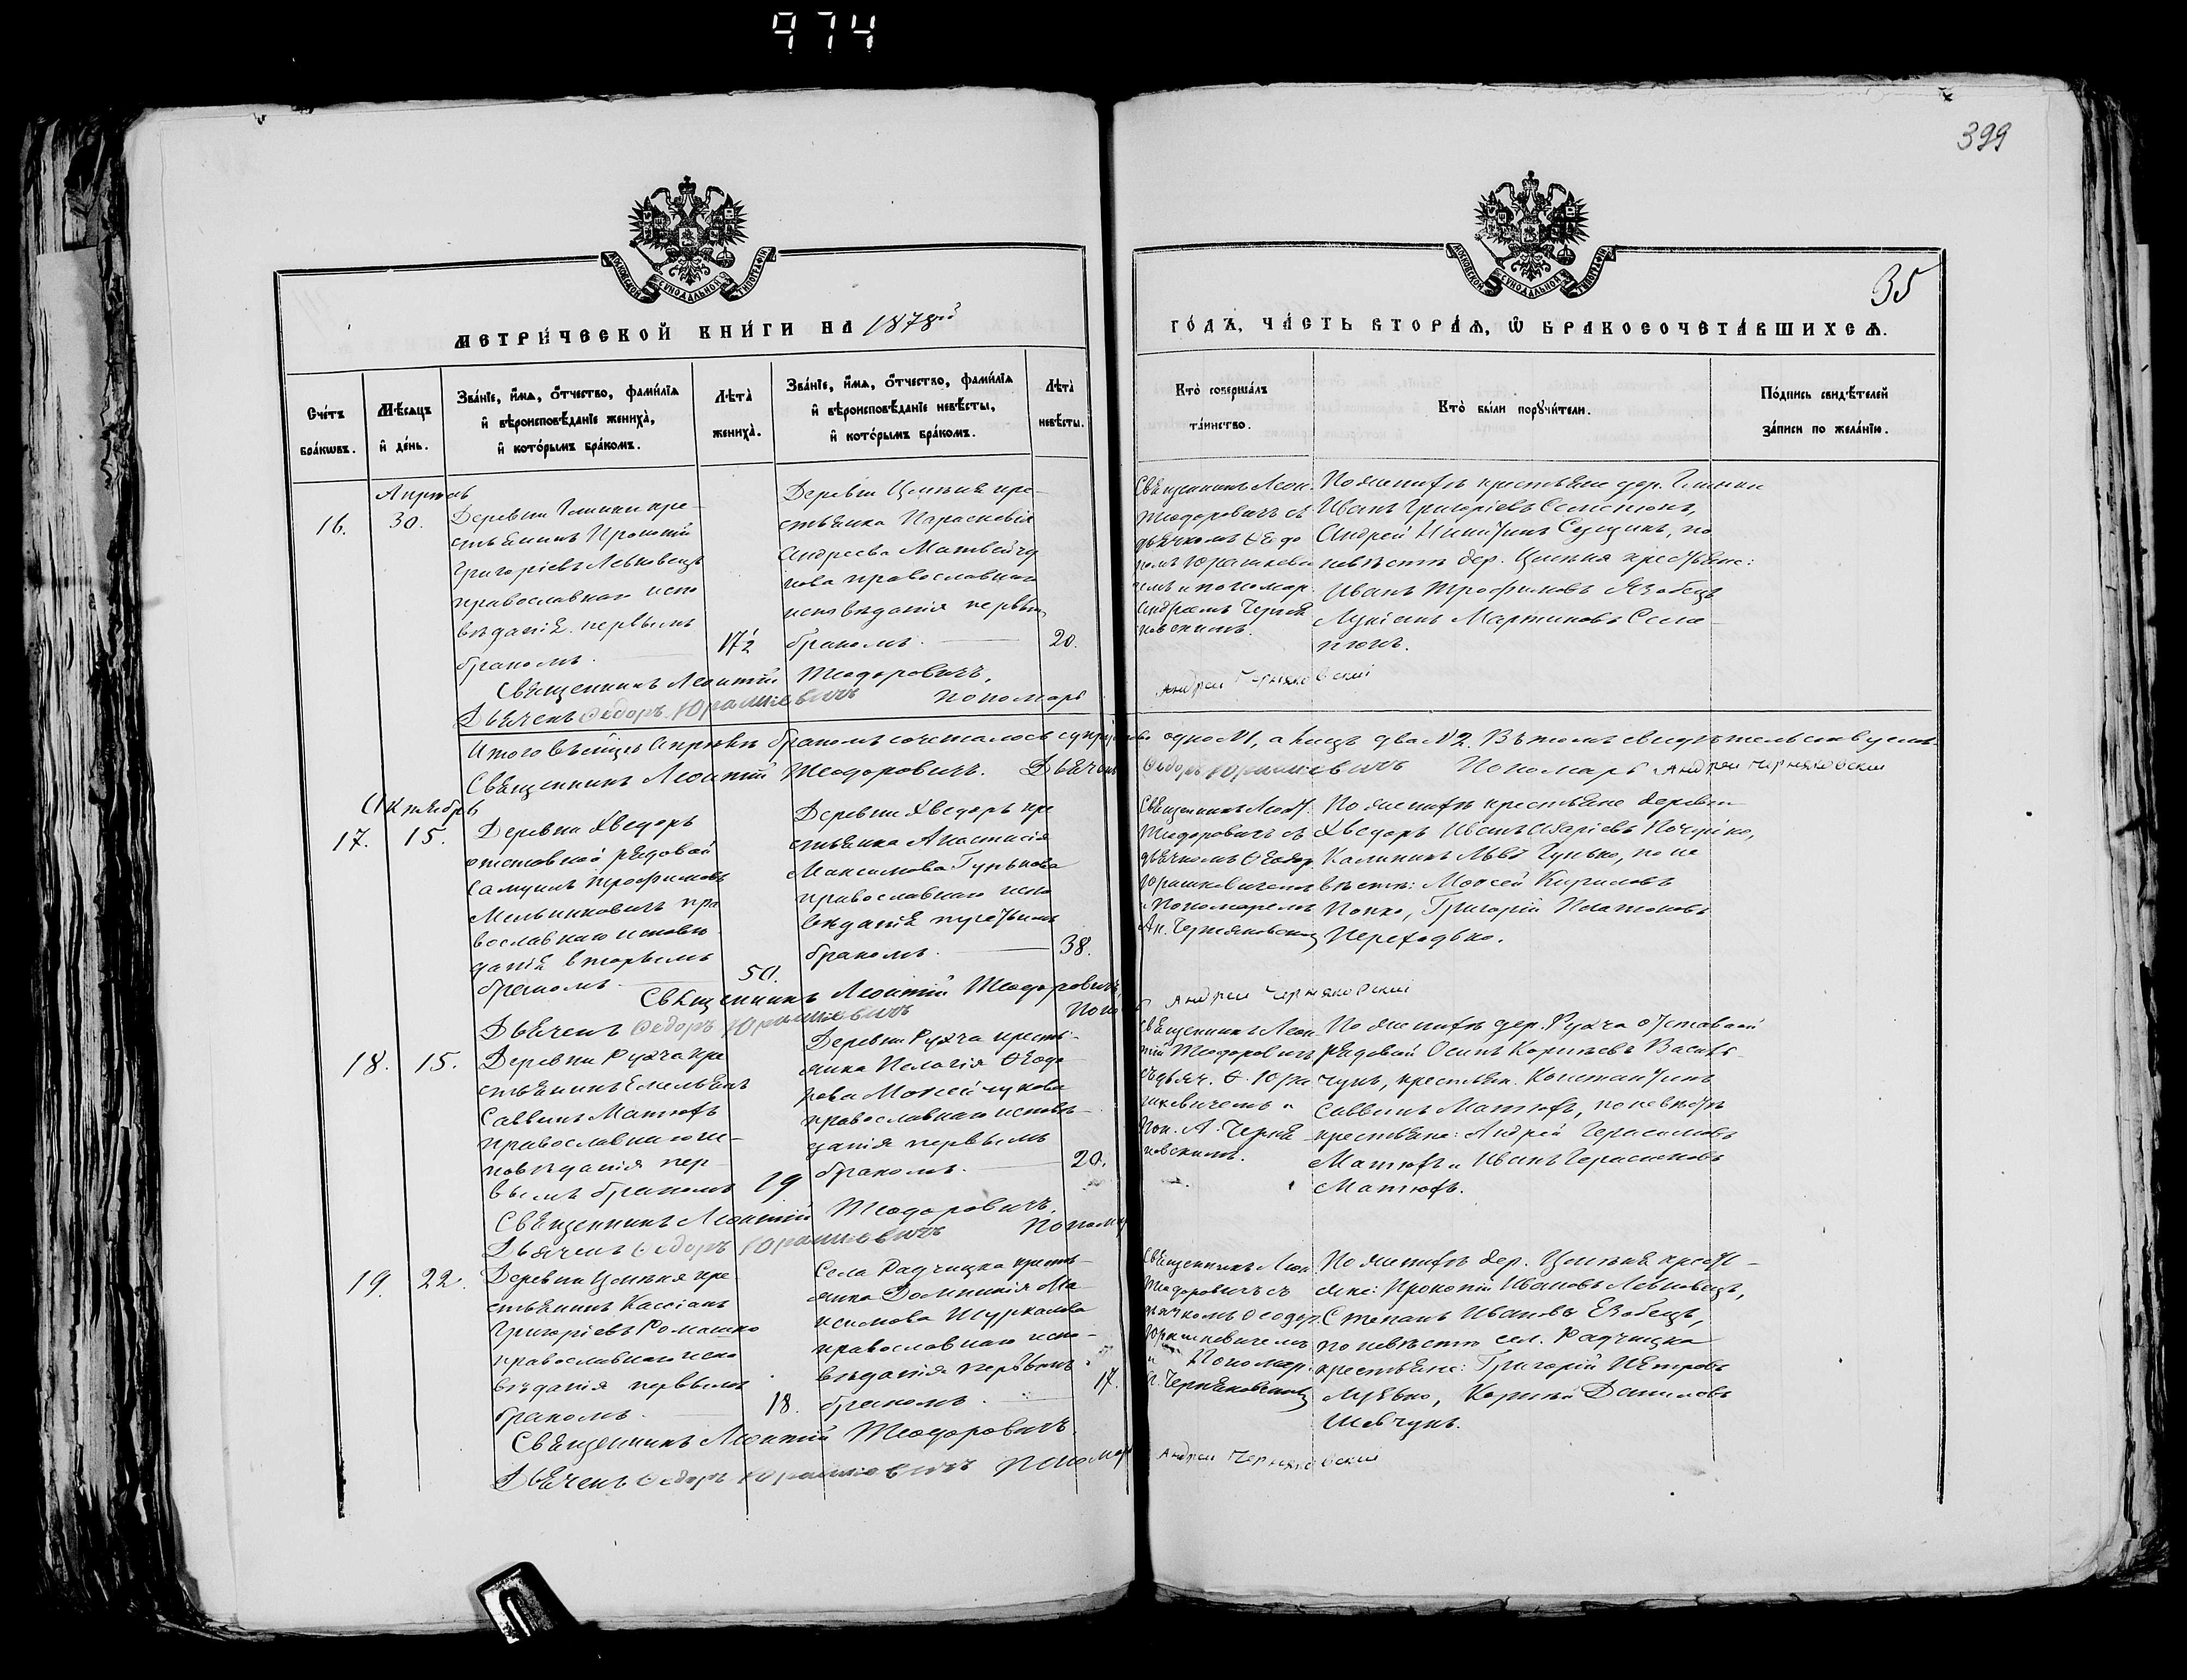 974
399
МОСКОВСКОЙ СУНОДАЛЬНОЙ ТИПОГРАФІИ
МОСКОВСКОЙ СУНОДАЛЬНОЙ ТИПОГРАФІИ
35
МЕТРИ́ЧЕСКОЙ КНИ́ГИ НА 1878й
ГО́ДЪ, ЧА́СТЬ ВТОРА́Ѧ, Ѡ҆ БРАКОСОЧЕТА́ВШИХСѦ.
Сче́тъ бра́кѡвъ.
Мѣ́сѧцъ и҆ де́нь.
Зва́нїе, и҆́мѧ, ѻ҆́тчество, фами́лїѧ и҆ вѣроисповѣ́данїе жениха̀, и҆ кото́рымъ бра́комъ.
Лѣ́та̀ жениха̀.
Зва́нїе, и҆́мѧ, ѻ҆́тчество, фами́лїѧ и҆ вѣроисповѣ́данїе невѣ́сты, и҆ кото́рымъ бра́комъ.
Лѣ́та̀ невѣ́сты.
Кто̀ соверша́лъ та́инство.
Кто̀ бы́ли порꙋчи́тели.
По́дпись свидѣ́телей за́писи по жела́нїю.
Апрѣль
16.
30.
Деревни Глинки кре-
стьянинъ Прокопій
Григоріевъ Левковецъ
православнаго испо
вѣданія первымъ
бракомъ.
17½
Деревни Цмѣня кре-
стьянка Параскевія
Андреева Матвейчу
кова православнаго
исповѣданія первым
бракомъ.
20.
Священникъ Леон.
Теодоровичъ съ
дьячкомъ Ѳеодо
ромъ Юрашкеви
чемъ и пономар.
Андреемъ Черня
ковскимъ.
По женихѣ крестьяне дер. Глинки
Иванъ Григоріевъ Семенюкъ,
Андрей Никитинъ Сущикъ, по
невѣстѣ дер. Цмѣня крестьяне:
Иванъ Трофимовъ Язобецъ
Лукіанъ Мартиновъ Семе
нюкъ.
Священникъ Леонтій Теодоровичъ,
Дьячекъ Ѳедоръ Юрашкевичъ Пономарь
Андрей Черняковскій
Итого въ мѣсяцѣ Апрѣлѣ бракомъ сочеталось супружество одно №1, а лицъ два №2. Въ томъ свидѣтельствуемъ
Священникъ Леонтій Теодоровичъ. Дьячекъ Ѳедоръ Юрашкевичъ Пономарь Андрей Черняковскій
Октябрь
17.
15.
Деревни Хведоръ
отставной рядовой
Самуилъ Трофимовъ
Мельниковичъ пра
вославнаго исповѣ
данія вторымъ
бракомъ
50.
Деревни Хведоръ кре
стьянка Анастасія
Максимова Гунькова
православнаго испо
вѣданія третьимъ
бракомъ.
38.
Священникъ Леонт.
Теодоровичъ съ
дьячкомъ Ѳеодор.
Юрашкевичемъ
и Пономаремъ
Ан. Черняковским
По женихѣ крестьяне деревни
Хведоръ Иванъ Азаріевъ
Калиникъ Львов Гунько, по не
вѣстѣ: Моисей Кириловъ
Попко, Григорій Платоновъ
Переходько.
Священникъ Леонтій Теодоровичъ,
Дьячекъ Ѳедоръ Юрашкевичъ Поно
Андрей Черняковскій
18.
15.
Деревни Рухча кре
стьянинъ Емельянъ
Саввинъ Матюхъ
православнаго ис-
повѣданія пер-
вымъ бракомъ
19
Деревни Рухча кресть-
янка Пелагія Ѳеодо
рова Мойсейчукова
православнаго исповѣ-
данія первымъ
бракомъ.
20.
Священникъ Леон
тій Теодоровичъ
съ дьяч. Ѳ. Юра
шкевичемъ и
Пон. А. Черня
ковскимъ.
По женихѣ дер. Рухча отставной
рядовой Осипъ Корнѣевъ Василь-
чукъ, крестьян. Константинъ
Саввинъ Матюхъ, по невѣстѣ
крестьяне: Андрей Герасимовъ
Матюхъ и Иванъ Герасимовъ
Матюхъ.
Священникъ Леонтій Теодоровичъ,
Дьячекъ Ѳедоръ Юрашкевичъ Поном
19.
22.
Деревни Цмѣня кре
стьянинъ Кассіанъ
Григоріевъ Ромашко
православнаго испо
вѣданія первымъ
бракомъ.
18.
Села Радчицка кресть-
янка Домникія Ма
ксимова Шуркалова
православнаго испо-
вѣданія первымъ
бракомъ.
17.
Священникъ Леон
Теодоровичъ съ
дьячкомъ Ѳеодор.
Юрашкевичемъ
и Пономар.
А. Черняковским
По женихѣ дер. Цмѣня крест-
яне: Прокопій Ивановъ Левковецъ,
Степанъ Ивановъ Езобецъ,
по невѣстѣ сел. Радчицка
крестьяне: Григорій Петровъ
Корнѣй Даниловъ
Шевчукъ.
Священникъ Леонтій Теодоровичъ
Дьячекъ Ѳедоръ Юрашкевичъ Пономар
Андрей Черняковскій